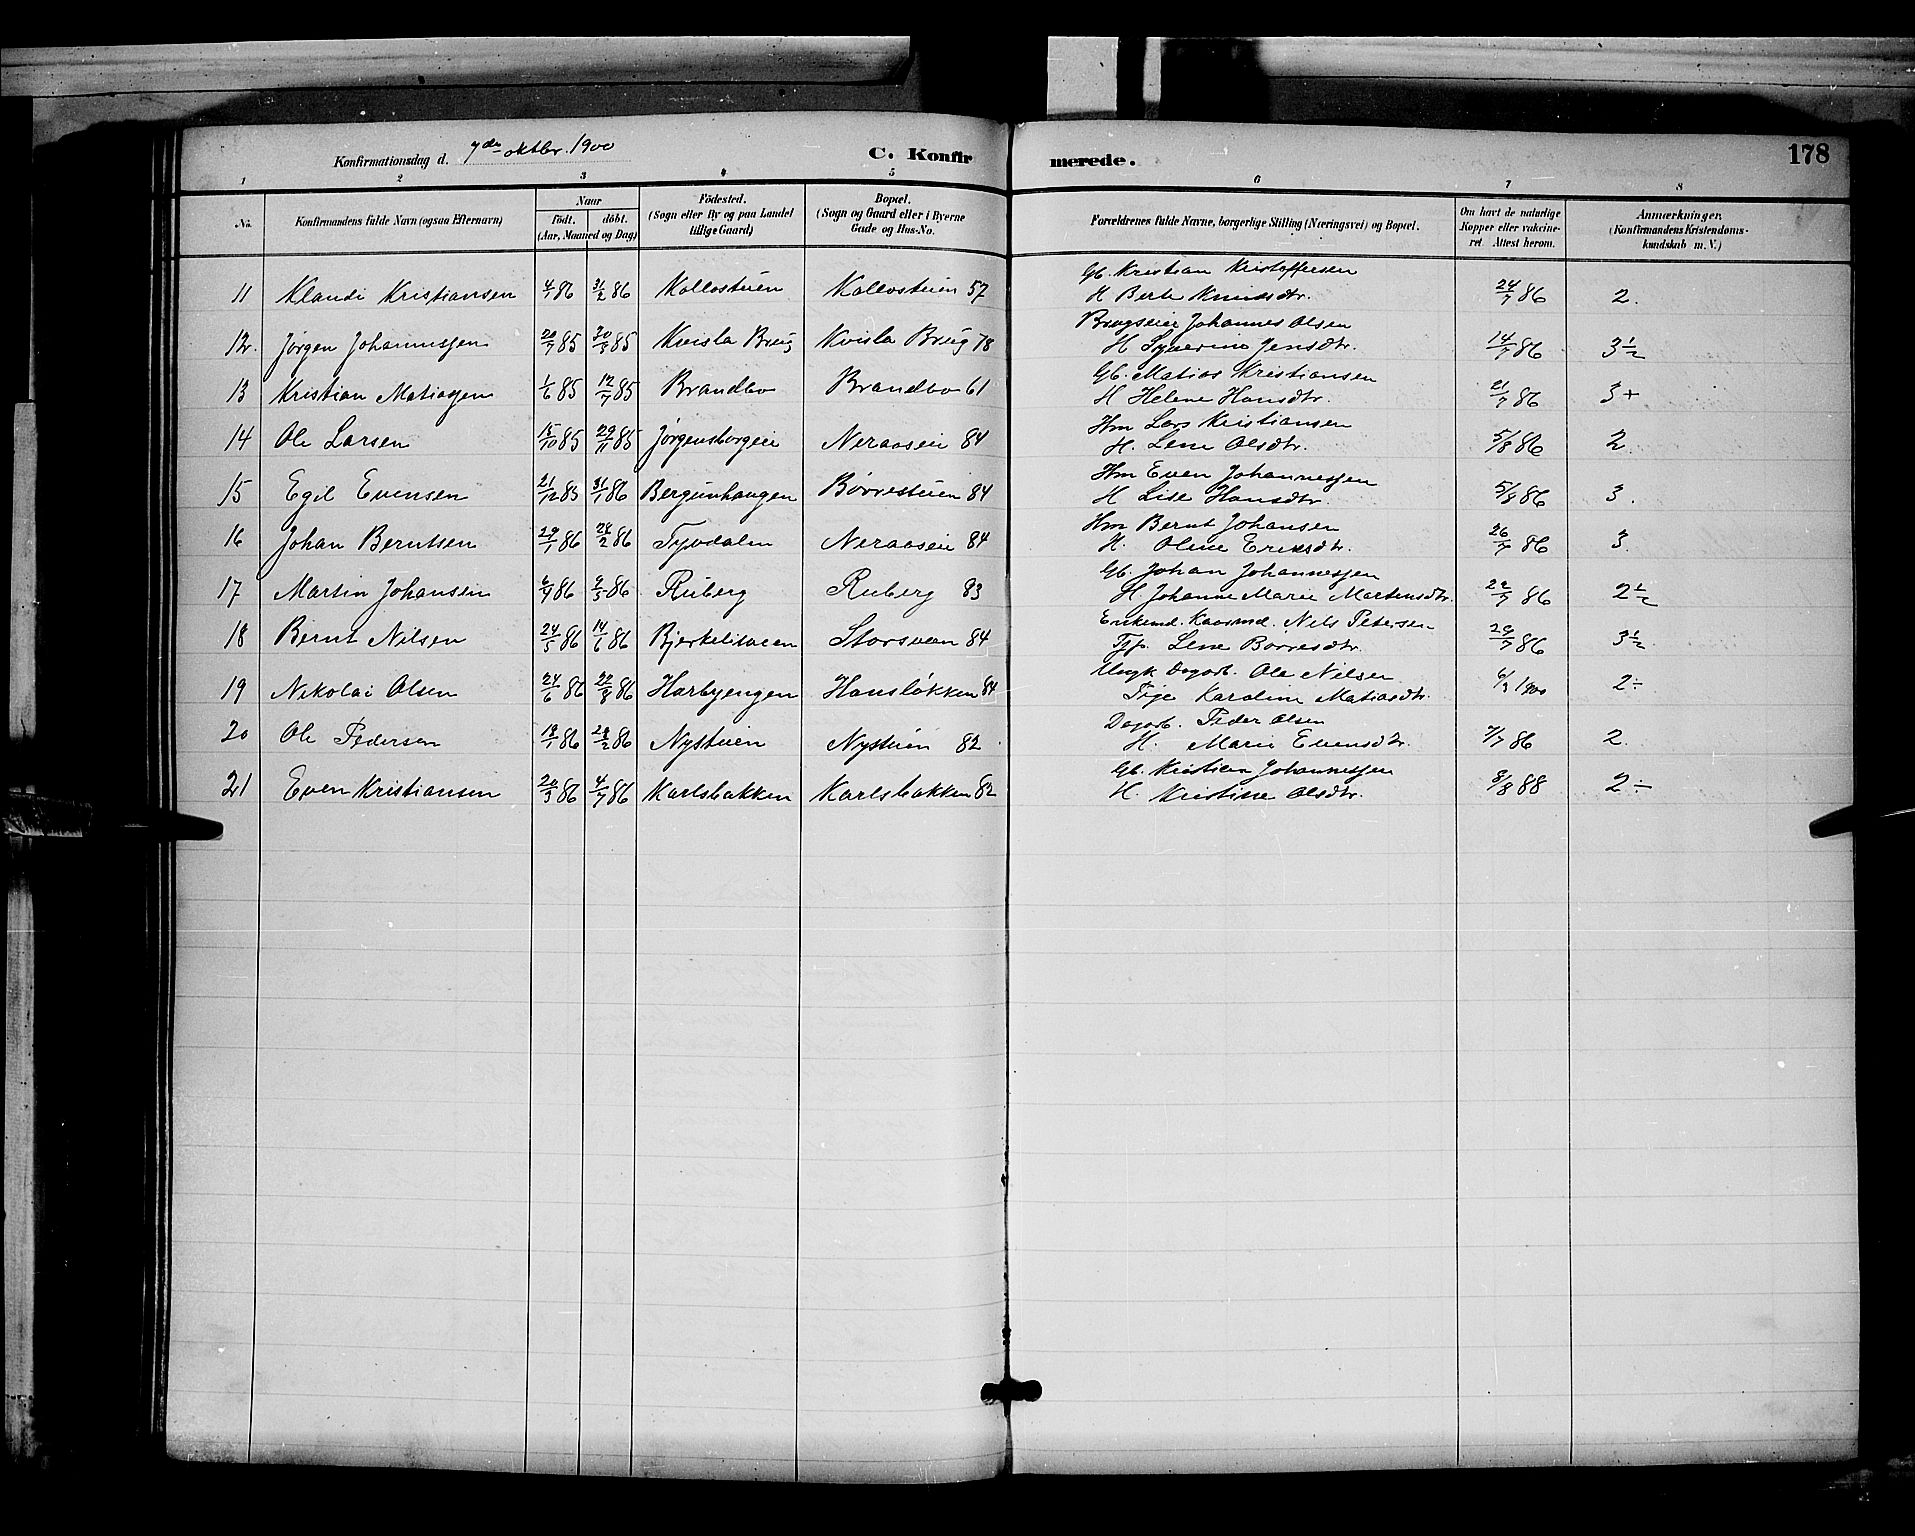 Konfirmationsdag d. 7de oktbr. 1900 C. Konfirmerede. 178
1 2 3 4 5 6 7 8
No. Konfirmandens fulde Navn (ogsaa Efternavn) Naar födt. döbt. (Aar, Maaned og Dag) Födested. (Sogn eller By og paa Landet tillige Gaard) Bopæl. (Sogn og Gaard eller i Byerne Gade og Hus-No. Forældrenes fulde Navne, borgerlige Stilling (Næringsvei) og Bopæl. Om havt de naturlige Kopper eller vakcineret. Attest herom. Anmærkninger. (Konfirmandens Kristendomskundskab m. V.)
Gb. Kristian Kristoffersen
11 Klaudi Kristiansen 4/1 86 31/2 86 Kollostuen Kollostuen 57 H Berte Knudsdtr. 24/7 86 2.
Brugseier Johannes Olsen
12. Jørgen Johannessen 20/7 85 30/8 85 Kvisla Brug Kvisla Brug 78 H Syverine Jensdtr. 14/7 86 3 1/2
Gb. Matias Kristiansen
13 Kristian Matiassen 1/6 85 12/7 85 Brandbo Brandbo 61 H Helene Hansdtr. 21/7 86 3+
Hm Lars Kristiansen
14 Ole Larsen 15/10 85 29/11 85 Jørgensborgeie Neraaseie 84 H. Lene Olsdtr. 5/8 86 2.
Hm Even Johannessen
15 Egil Evensen 21/12 85 31/1 86 Bergunhaugen Børrestuen 84 H Lise Hansdtr. 5/8 86 3.
Hm Bernt Johansen
16 Johan Berntsen 29/1 86 28/2 86 Tyvdalen Neraaseie 84 H. Oline Eriksdtr. 26/7 86 3.
Gb. Johan Johannessen
17 Martin Johansen 6/4 86 9/5 86 Ruberg Ruberg 83 H Johanne Marie Martensdtr. 22/7 86 2 1/2
Enkemd. Kaarmd. Nils Petersen
18 Bernt Nilsen 24/5 86 14/6 86 Bjerkelisveen Storsveen 84 Tjp. Lene Børresdtr. 29/7 86 3 1/2
Ungk Dagarb. Ole Nilsen
19 Nikolai Olsen 24/6 86 22/8 86 Harbyengen Hansløkken 84 Pige Karoline Matiasdtr. 6/3 1900 2÷
Dagarb. Peder Olsen
20 Ole Pedersen 18/1 86 28/2 86 Nystuen Nystuen 82 H. Marie Evensdtr. 7/7 86 2.
Gb. Kristian Johannessen
21 Even Kristiansen 20/3 86 4/7 86 Karlsbakken Karlsbakken 82 H. Kristine Olsdtr. 8/8 88 2÷